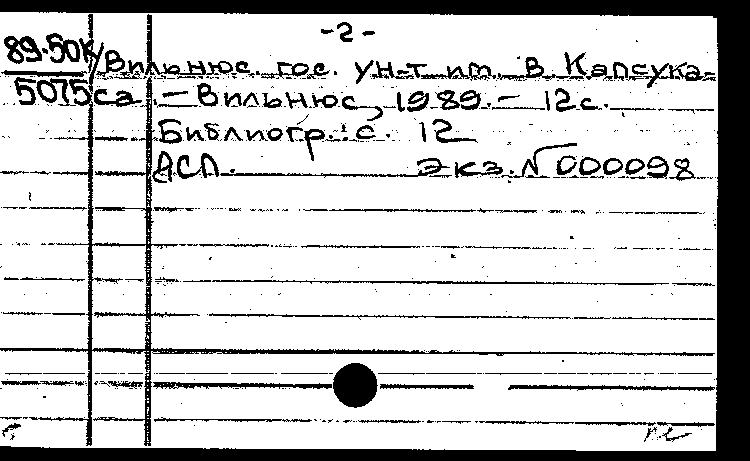 -2-
89-50К/Вильнюс. гос. ун-т им. В. Капсука-
5075 са. – Вильнюс, 1989. – 12с.
Библиогр.: с. 12
АСП. Экз. № 000098